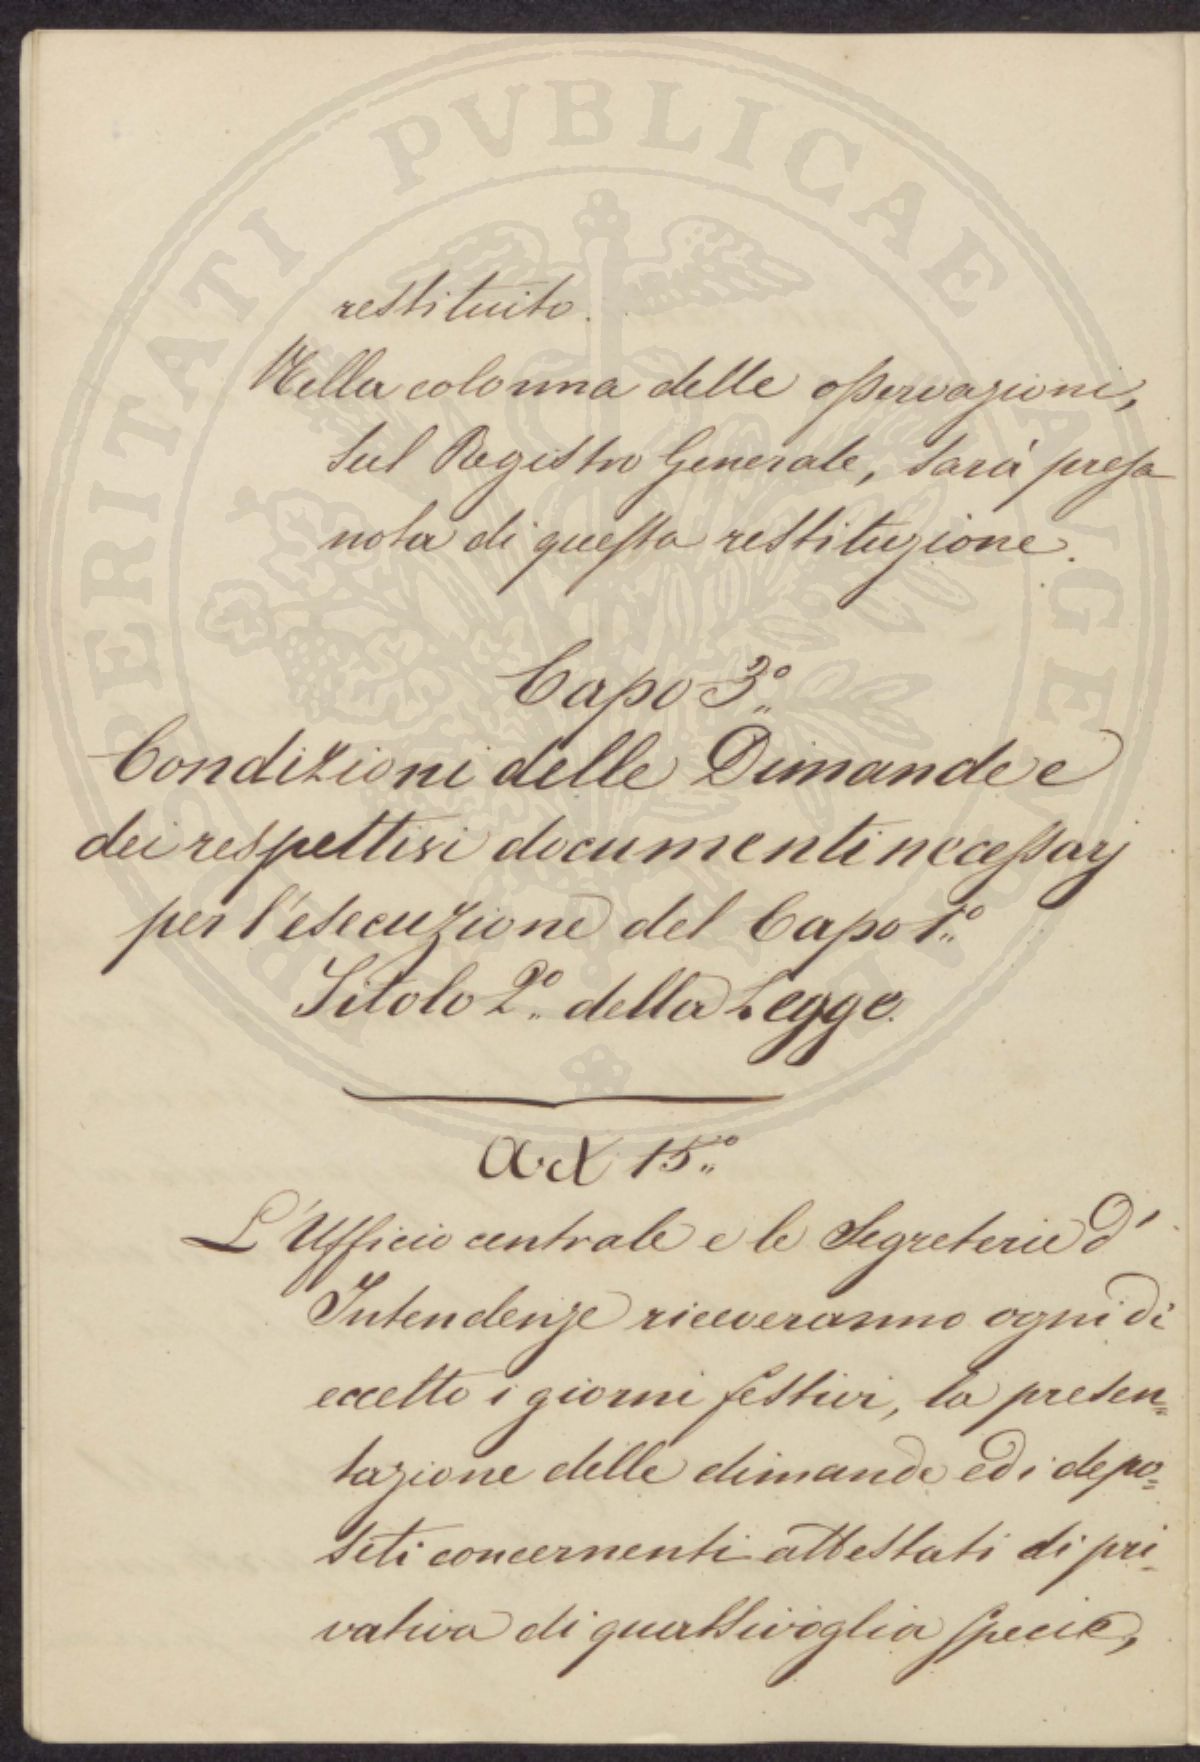 restituito.
Nella colonna delle osservazioni,
sul Registro Generale, sarà presa
nota di questa restituzione.
Capo 3º
Condizioni delle Dimande e
dei respettivi documenti necessarj
per l'esecuzione del Capo 1º
Titolo 2º della Legge.
Art 15º
L'Ufficio centrale e le Segreterie d'
Intendenze riceveranno ogni dì
eccetto i giorni festivi, la presen=
tazione delle dimande ed i depo=
siti concernenti attestati di pri=
vativa di qualsivoglia specie,